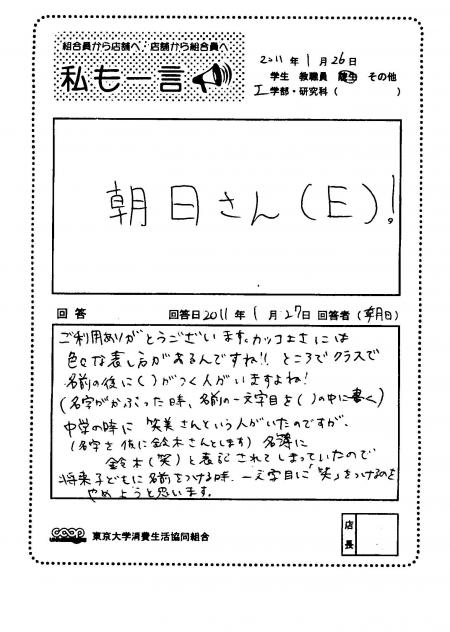 組合員から店舗へ 店舗から組合員へ
私も一言
2011年1月26日
学生 教職員 院生 その他
工学部・研究科( )
朝日さん(E)!
回答 回答日2011年1月27日 回答者(朝日)
ご利用ありがとうございます。カッコよさには
色々な表し方があるんですね!! ところでクラスで
名前の後に( )がつく人がいますよね!
(名字がかぶった時、名前の一文字目を( )の中に書く)
中学の時に 笑美さんという人がいたのですが、
(名字を仮に鈴木さんとします) 名簿に
鈴木(笑)と表記されてしまっていたので
将来子どもに名前をつける時、一文字目に「笑」をつけるのを
やめようと思います。
店長
coop 東京大学消費生活協同組合